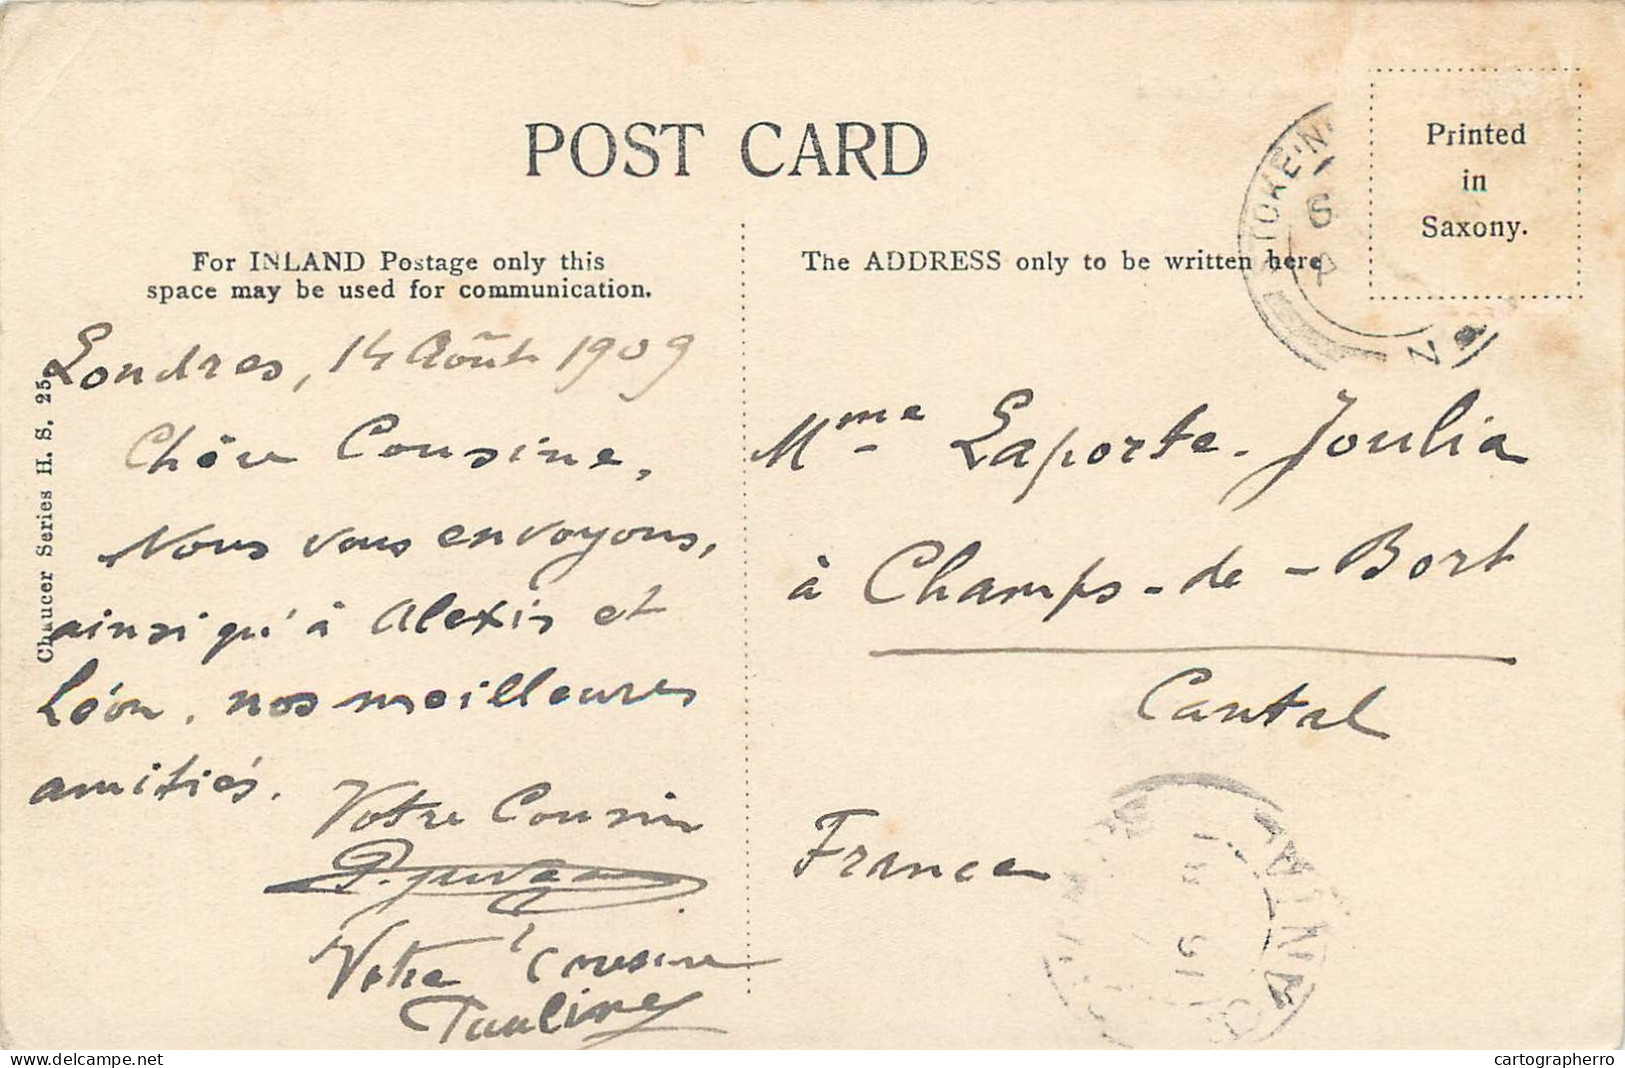 POST CARD
Printed
in
Saxony.
For INLAND Postage only this
space may be used for communication.
The ADDRESS only to be written here
Chaucer Series H. S. 25.
Londres, 14 Août 1909
Chère Cousine,
Nous vous envoyons,
ainsi qu'à Alexis et
Léon, nos meilleures
amitiés.
Votre Cousin
Votre Cousine
Pauline
Mme Laporte-Joulia
à Champs-de-Bort
Cantal
France
TOKE N
CANTAL
delcampe.net
cartographerro